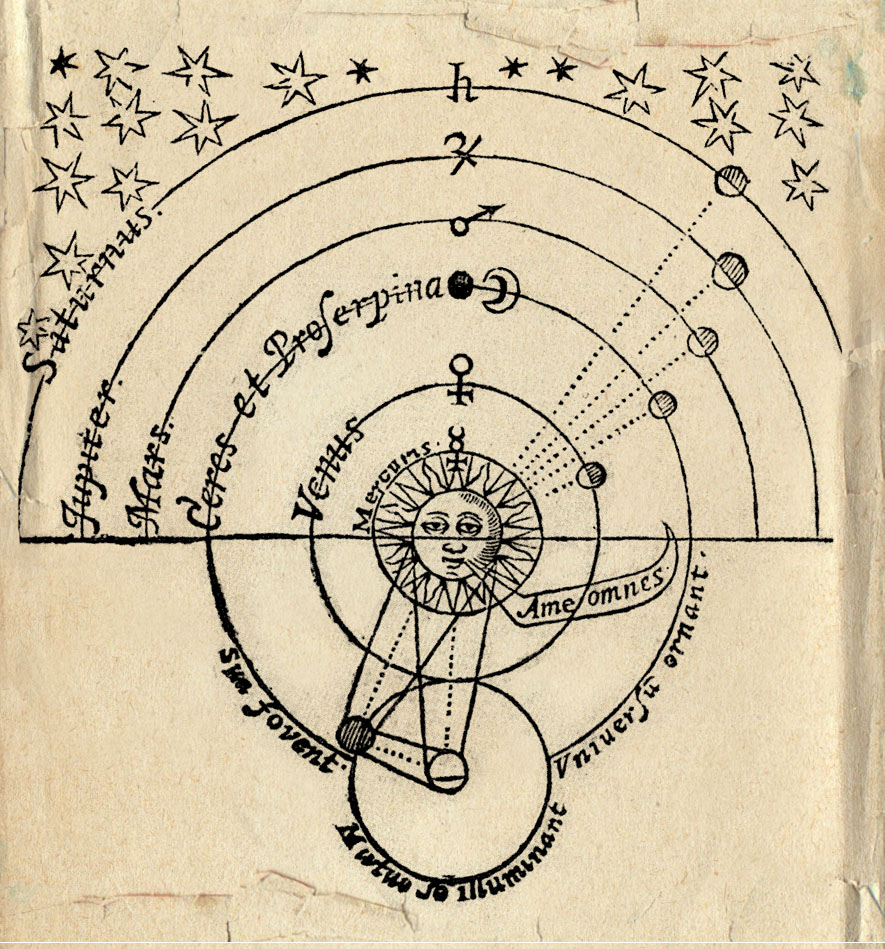 Saturnus.
Jupiter.
Mars.
Ceres et Proſerpina
Venus
Mercuris.
A me omnes.
Sua fovent.
Vniuerſū ornant.
Mutuo ſe illuminant